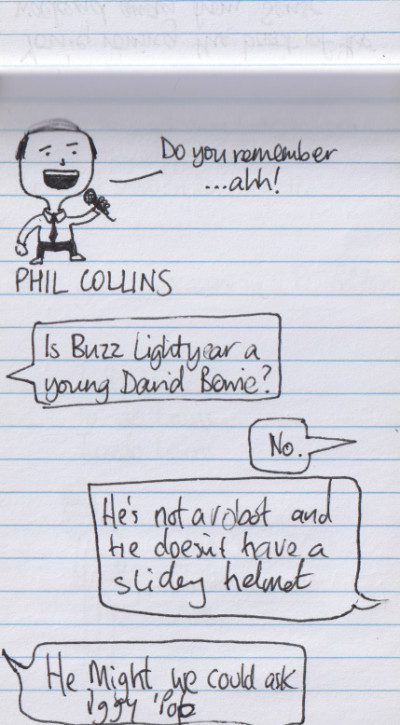 Do you remember
...ahh!
PHIL COLLINS
Is Buzz Lightyear a
young David Bowie?
No.
He's not a robot and
He doesn't have a
slidey helmet
He Might we could ask
iggy 'Pop